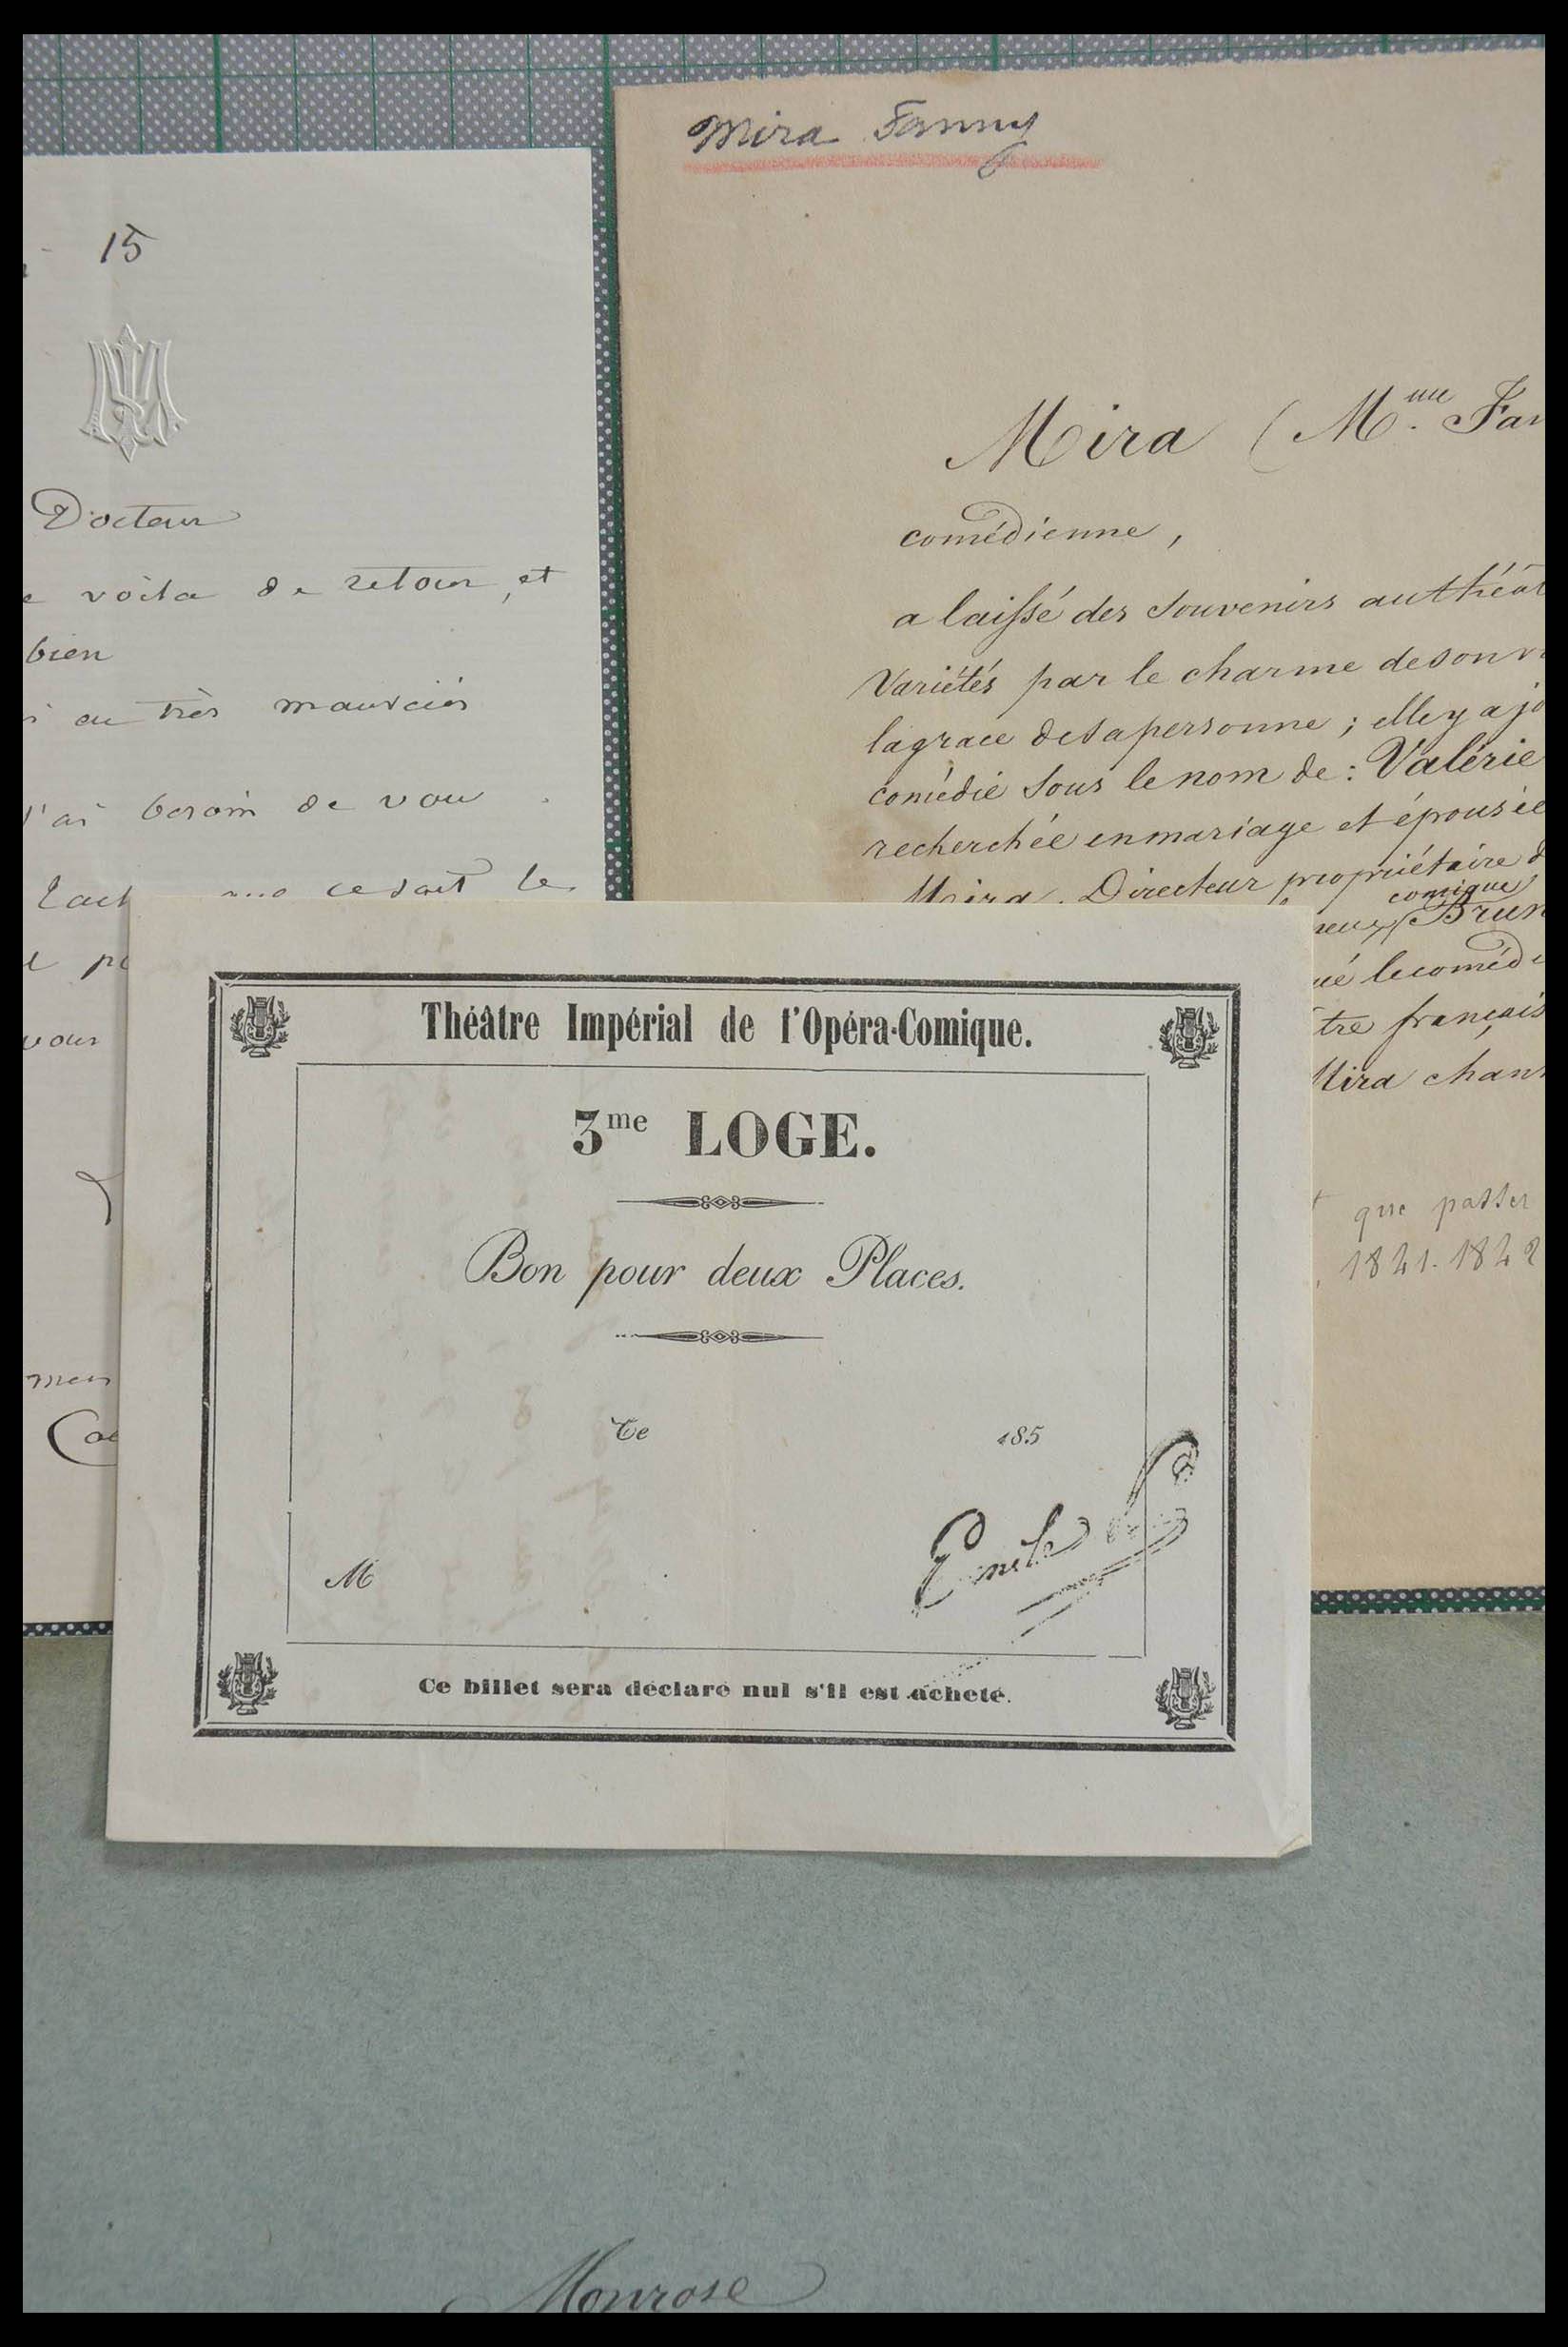 15
Docteur
voila de retour, et
bien
au très mauvais
J'ai besoin de vou
ce soit le
vous
Mira Fanny
Mira (Mme Fan
comédienne,
a laissé des souvenirs au théât
Variétés par le charme de son v
la grace de sa personne ; elle y a jo
comédie sous le nom de : Valérie
recherchée en mariage et épousée
Mira, Directeur propriétaire d
comique
Brun
ué le coméd
tre français
Mira chan
que passer
1841-1842
Théâtre Impérial de l'Opéra-Comique.
3me LOGE.
Bon pour deux Places.
Ce 185
M
Emile
Ce billet sera déclaré nul s'il est acheté.
Monrose